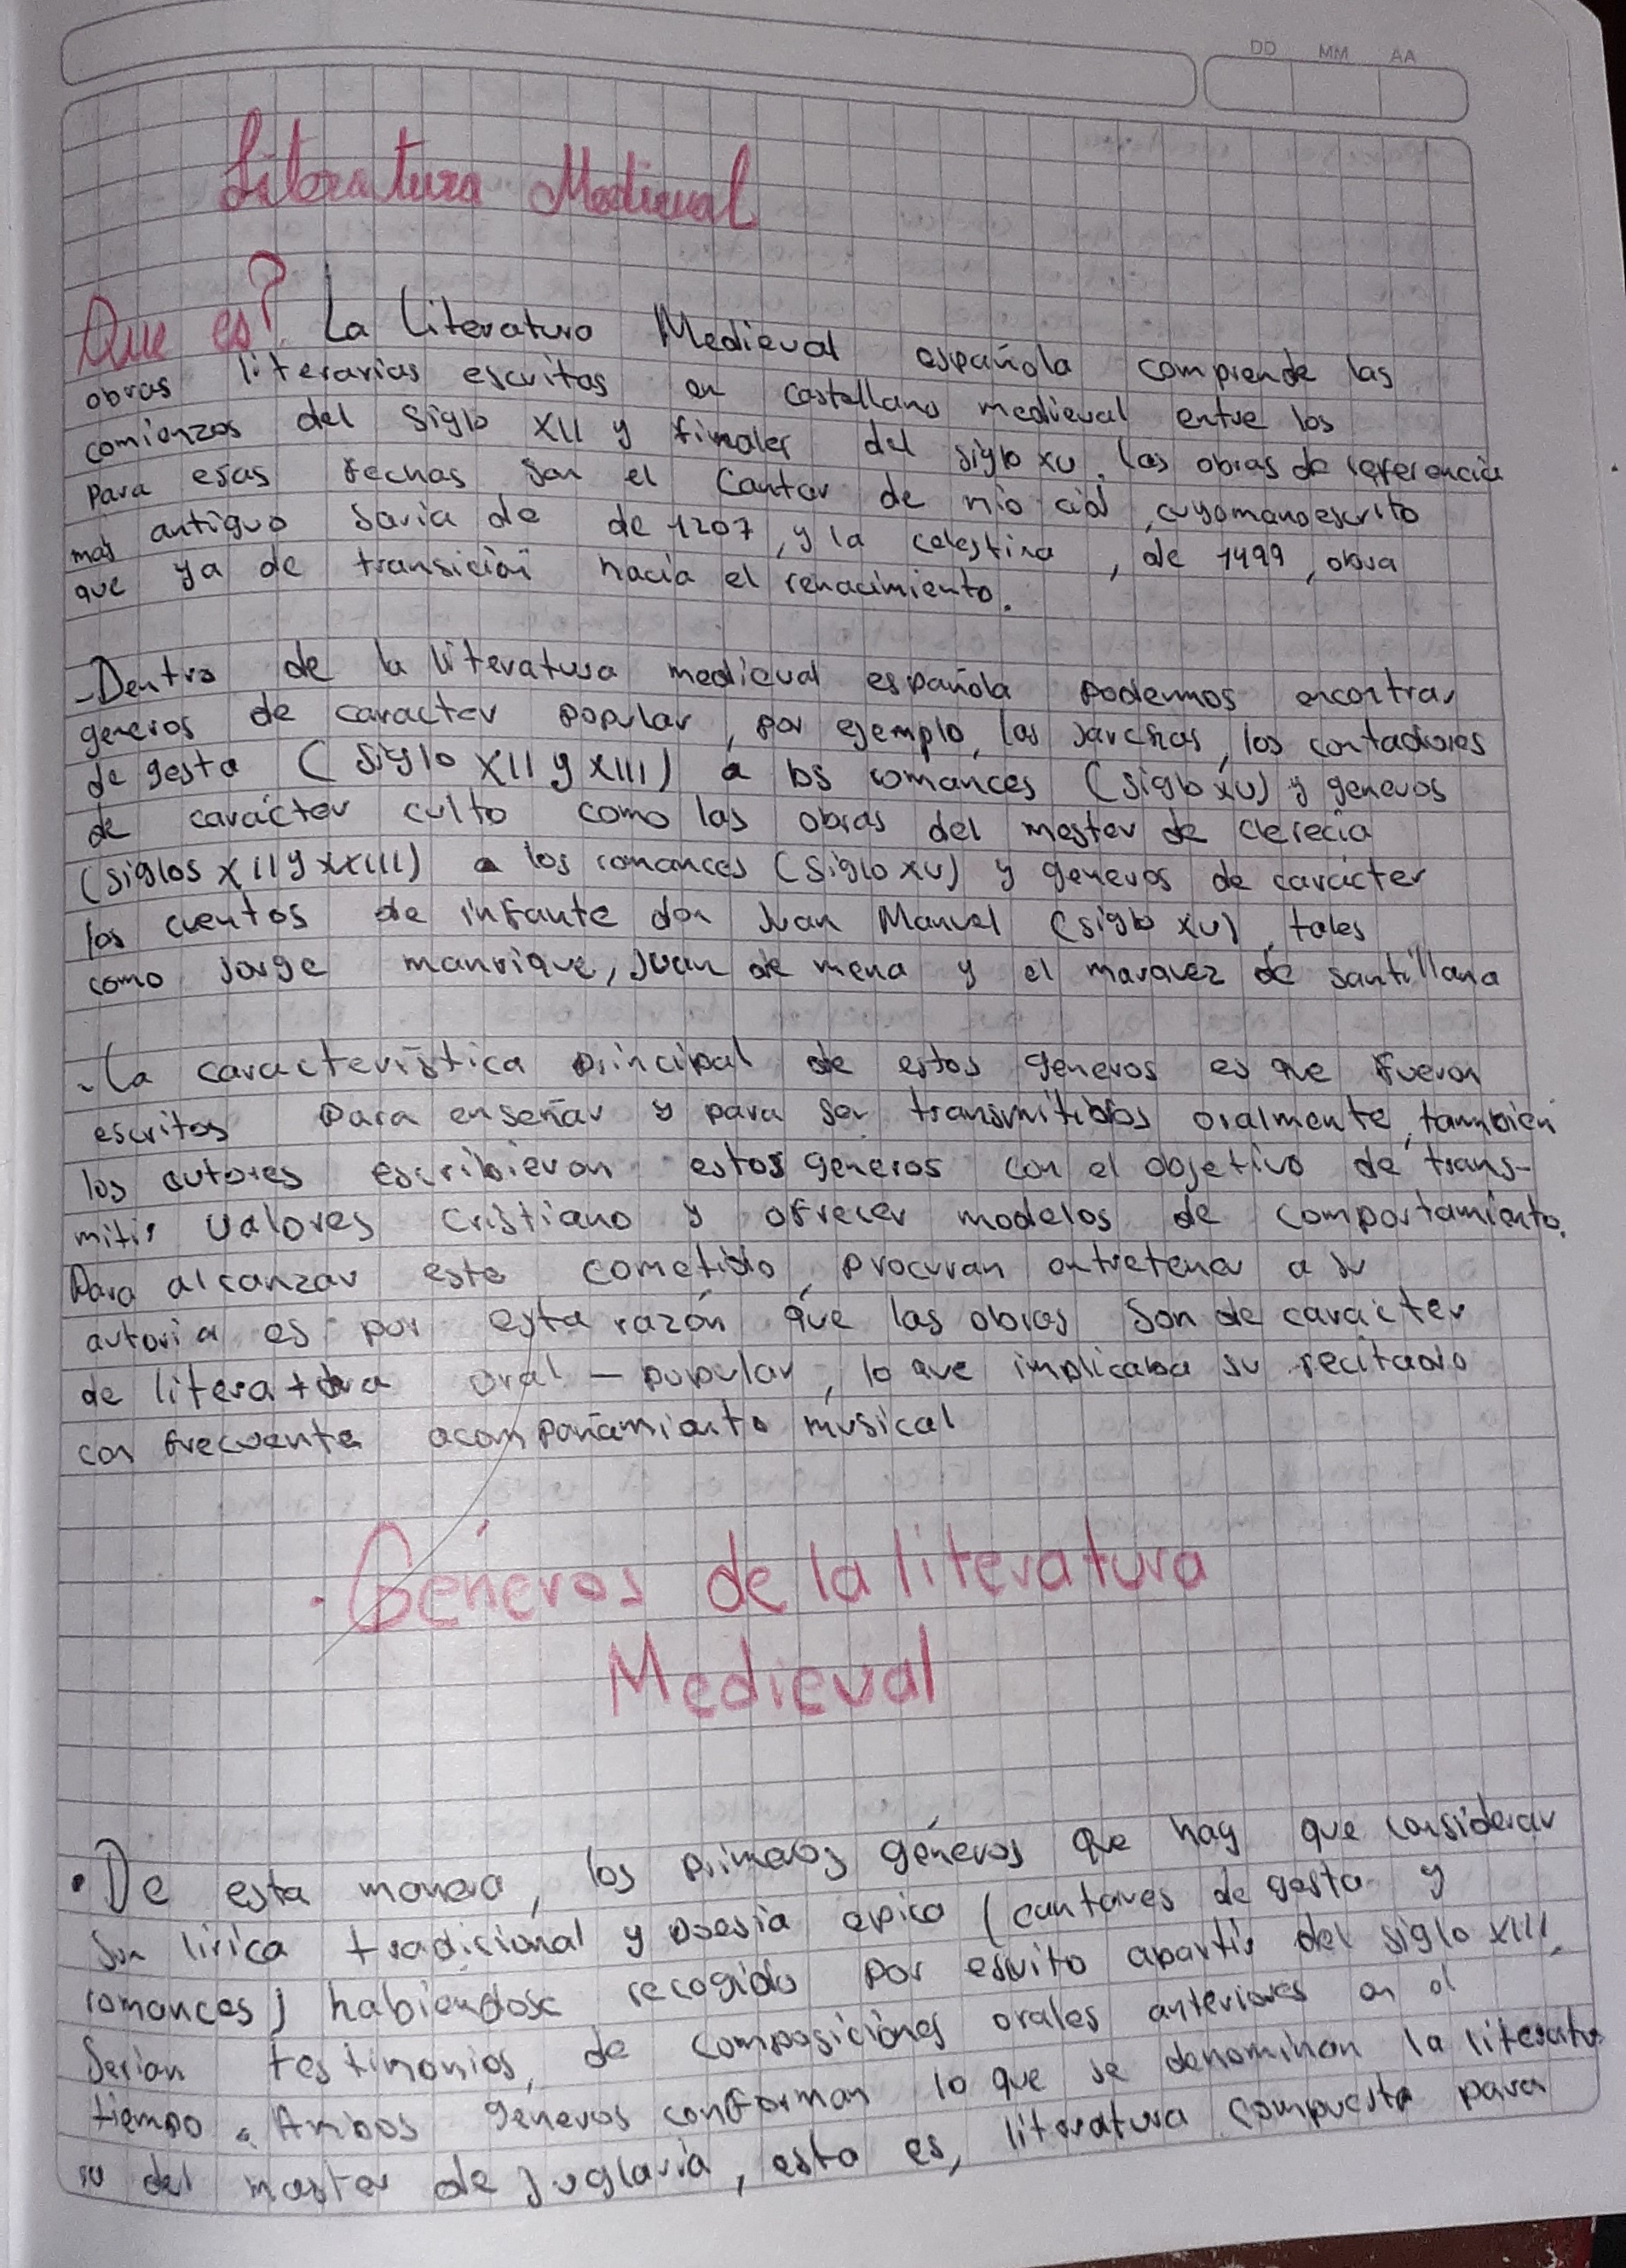 DD MM AA
Literatura Medieval
Que es? La literatura Medieval española comprende las
obras literarias escritas en castellano medieval entre los
comienzos del siglo XII y finales del siglo XV. las obras de referencia
para esas fechas son el Cantar de mio cid, cuyomanoescrito
más antiguo saria de de 1207, y la celestina, de 1499, obra
que ya de transición hacia el renacimiento.
-Dentro de la literatura medieval española podemos encontrar
generos de caracter popular, por ejemplo, las jarchas, los contadores
de gesta (siglo XII y XIII) a los romances (siglo XV) y generos
de carácter culto como las obras del mester de clerecia
(siglos XII y XXIII) a los romances (siglo XV) y generos de carácter
los cuentos de infante don Juan Manuel (siglo XV), tales
como Jorge manrique, Juan de mena y el maravez de santillana
-La caracteristica principal de estos géneros es que fueron
escritos para enseñar y para ser transmitidos oralmente, también
los autores escribieron estos generos con el objetivo de trans-
mitir valores cristiano y ofrecer modelos de comportamiento.
Para alcanzar este cometido, procuran entretener a su
autoria es por esta razón que las obras son de carácter
de literatura oral - popular, lo que implicaba su recitado
con frecuente acompañamiento musical
. Géneros de la literatura
Medieval
• De esta manera, los primeros géneros que hay que considerar
son lirica tradicional y poesia epica (cantares de gesta y
romances) habiendose recogido por escrito apartir del siglo XIII,
serian testimonios, de composiciones orales anteriores en el
tiempo. Ambos generos conforman lo que se denominan la literatu
ra del mester de juglaria, esto es, literatura compuesta para